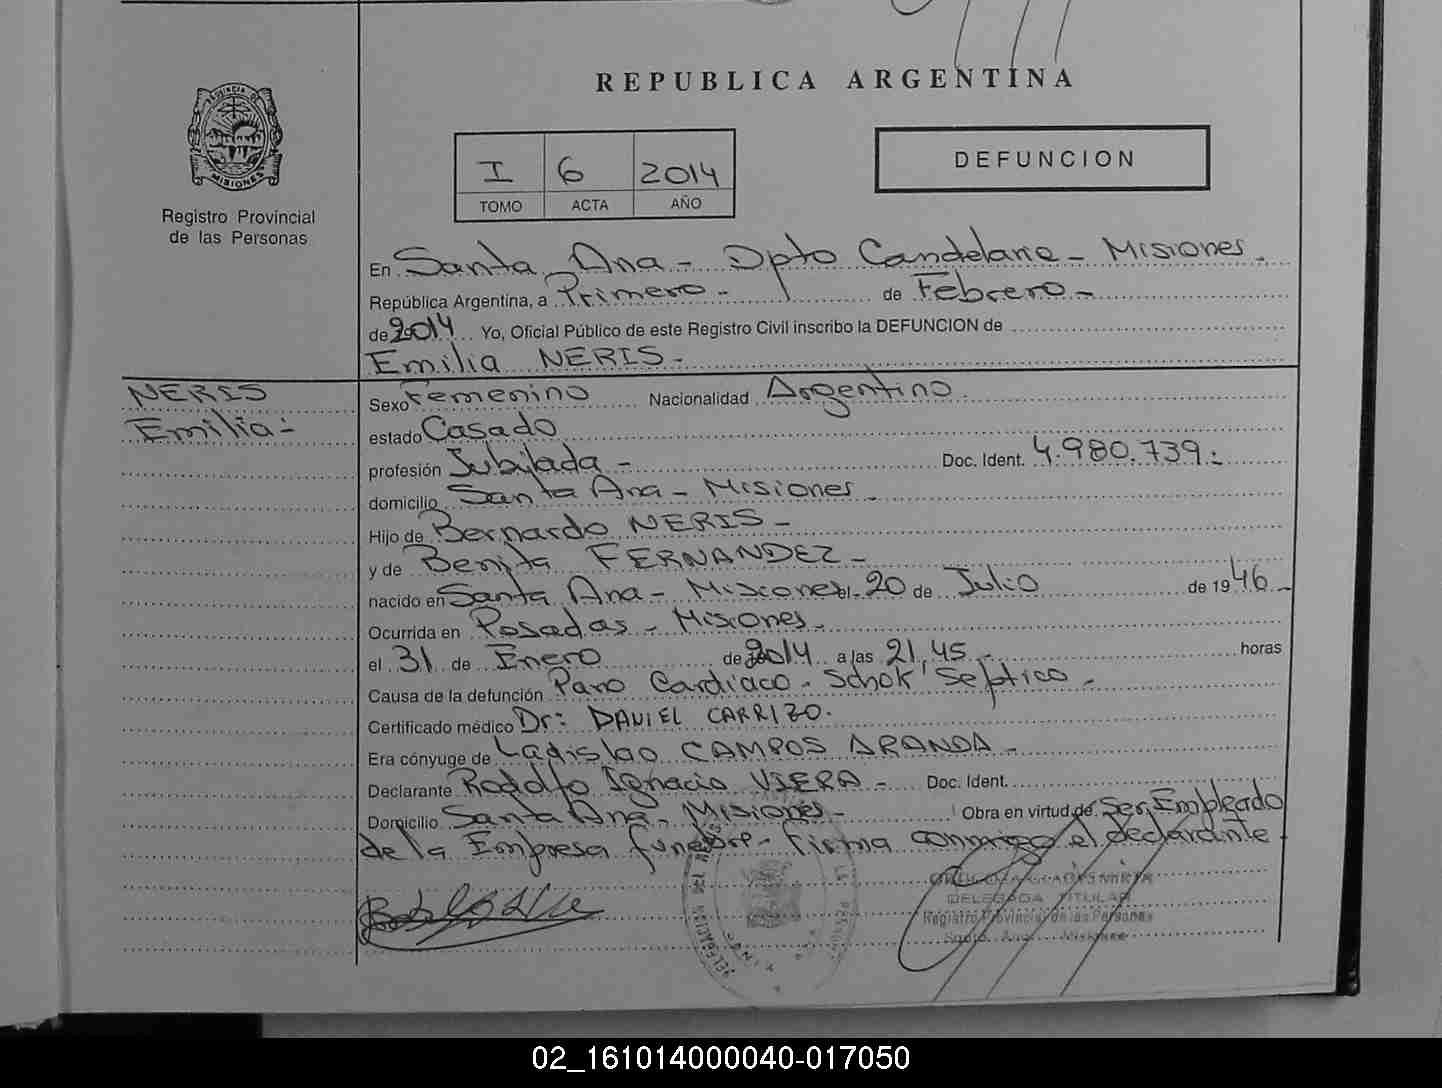 REPUBLICA ARGENTINA
PROVINCIA DE
MISIONES
Registro Provincial
de las Personas
I 6 2014
TOMO ACTA AÑO
DEFUNCION
En Santa Ana - Dpto Candelaria - Misiones.
República Argentina, a Primero - de Febrero -
de 2014 Yo, Oficial Público de este Registro Civil inscribo la DEFUNCION de
Emilia NERIS -
NERIS
Emilia -
Sexo Femenino Nacionalidad Argentino
estado Casado
profesión Jubilada - Doc. Ident. 4.980.739:
domicilio Santa Ana - Misiones
Hijo de Bernardo NERIS -
y de Benita FERNANDEZ -
nacido en Santa Ana - Misiones el 20 de Julio de 1946 -
Ocurrida en Posadas - Misiones
el 31 de Enero de 2014 a las 21,45 - horas
Causa de la defunción Paro Cardiaco - Schok Septico -
Certificado médico Dr: DANIEL CARRIZO.
Era cónyuge de Ladislao CAMPOS ARANDA -
Declarante Rodolfo Ignacio VIERA - Doc. Ident.
Domicilio Santa Ana - Misiones - Obra en virtud de Ser Empleado
de la Empresa funebre - firma conmigo el declarante
DELEGADA TITULAR
Registro Provincial de las Personas
Santa Ana Misiones
02_161014000040-017050